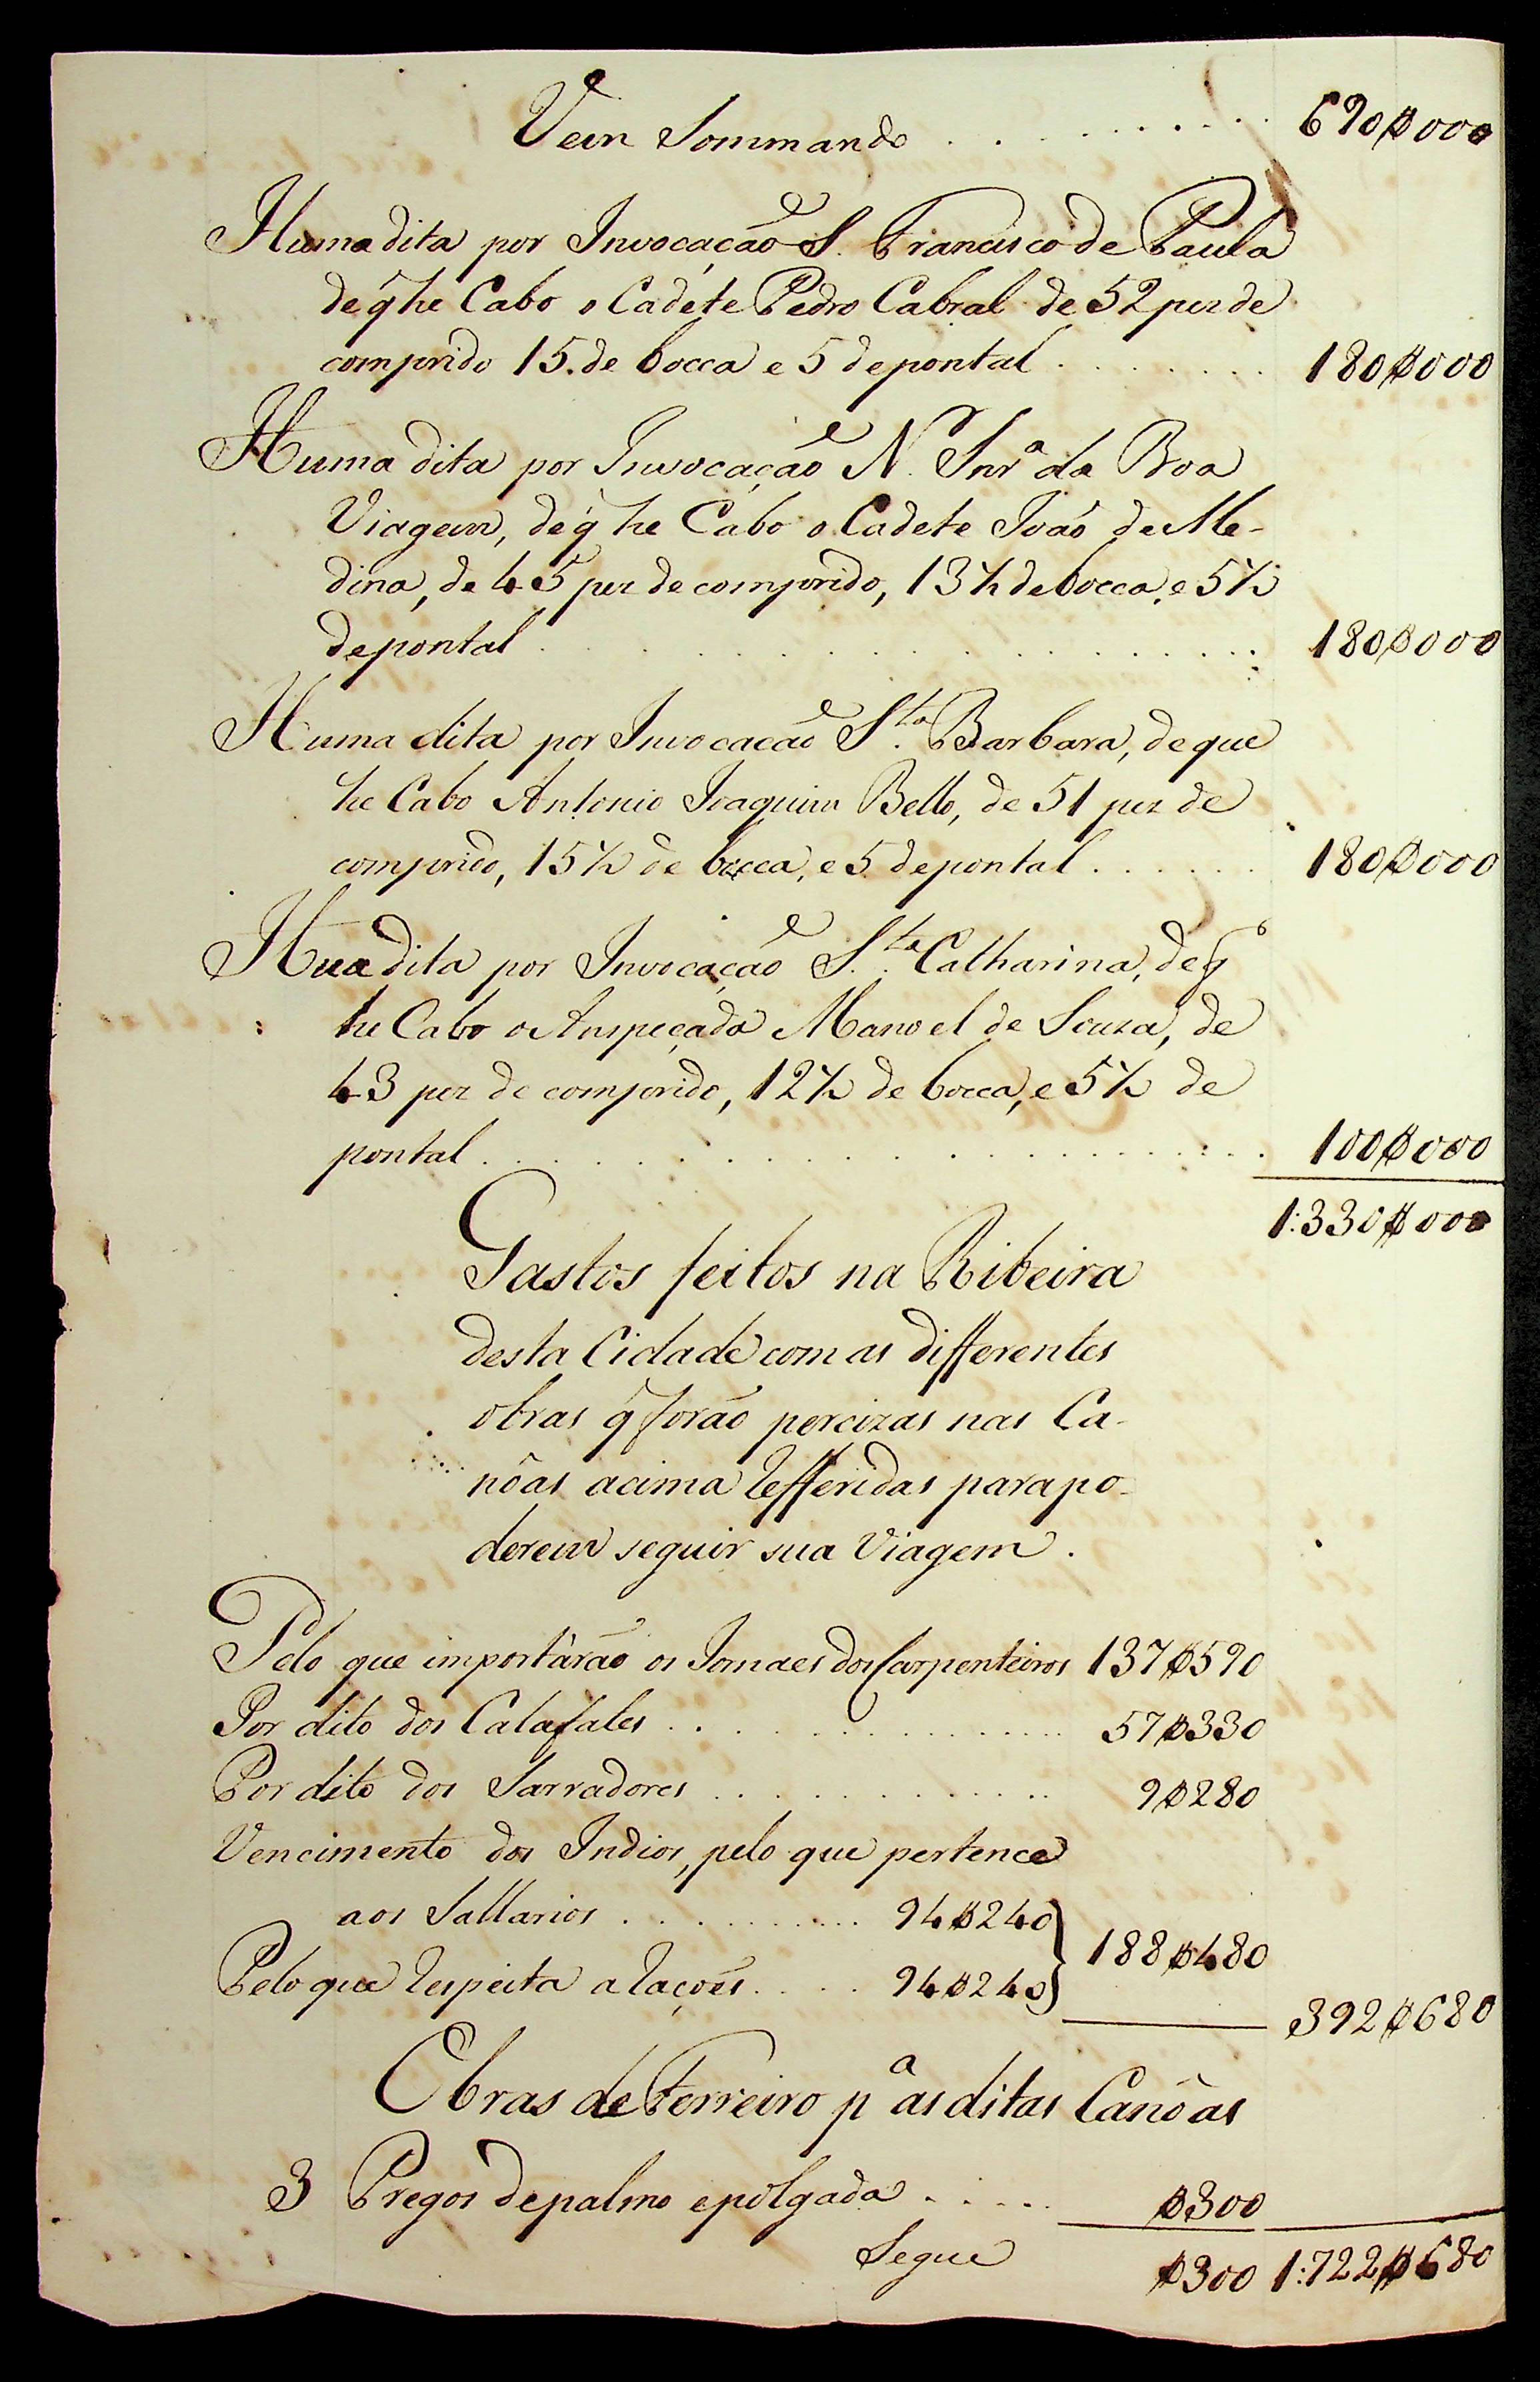 Vem Sommando . . . . . . . . . . . 690$000
Huma dita por Invocação S. Francisco de Paula
de q̃ he Cabo o Cadete Pedro Cabral de 52 pez de
comprido 15. de bocca e 5 de pontal . . . . . . . . 180$000
Huma dita por Invocação N. Snr.ª da Boa
Viagem, de q̃ he Cabo o Cadete João de Me-
dina, de 45 pez de comprido, 13½ de bocca, e 5½
de pontal . . . . . . . . . . . . . . 180$000
Huma dita por Invocação S.ta Barbara, de que
he Cabo Antonio Joaquim Bello, de 51 pez de
comprido, 15½ de bocca, e 5 de pontal . . . . . . 180$000
Hua dita por Invocação S.ta Catharina, de q̃
he Cabo o Anspeçada Manoel de Souza, de
43 pez de comprido, 12½ de bocca, e 5½ de
pontal . . . . . . . . . . . . . . . 100$000
1:330$000
Gastos feitos na Ribeira
desta Cidade com as differentes
obras q̃ forão percizas nas Ca-
nôas acima Refferidas para po-
derem seguir sua Viagem.
Pelo que importàrão os Jornaes dos Carpenteiros 137$590
Por dito dos Calafates . . . . . . . . . . 57$330
Por dito dos Sarradores . . . . . . . . . . 9$280
Vencimento dos Indios, pelo que pertence
aos Sallarios . . . . . . . . . 94$240 } 188$480
Pelo que Respeita a Rações . . . . 94$240 }
392$680
Obras de Ferreiro p.ª as ditas Canôas
3 Pregos de palmo e polgada . . . . . $300
Segue $300 1:722$680